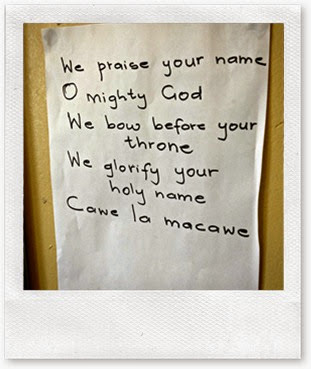 We praise your name
O mighty God
We bow before your
throne
We glorify your
holy name
Cawe la macawe